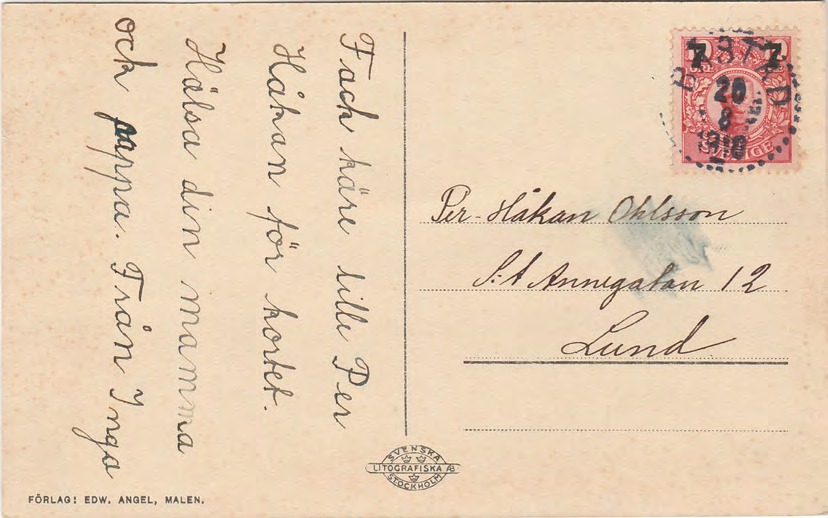 Fack käre lille Per
Håkan för kortet.
Hälsa din mamma
och pappa. Från Inga
7 7
SVERIGE
BÅSTAD
20
8
1918
Per-Håkan Ohlsson
S:t Annegatan 12
Lund
SVENSKA
LITOGRAFISKA AB
STOCKHOLM
FÖRLAG: EDW. ANGEL, MALEN.